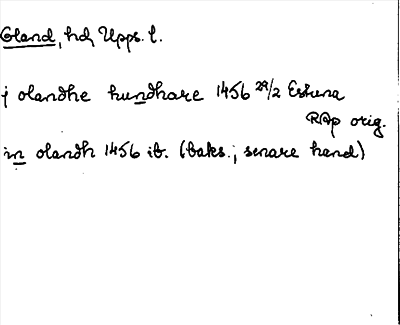 Oland, hd, Upps. l.
j olandhe hundhare 1456 29/2 Eskuna
RAp orig.
in olandh 1456 ib. (baks.; senare hand)